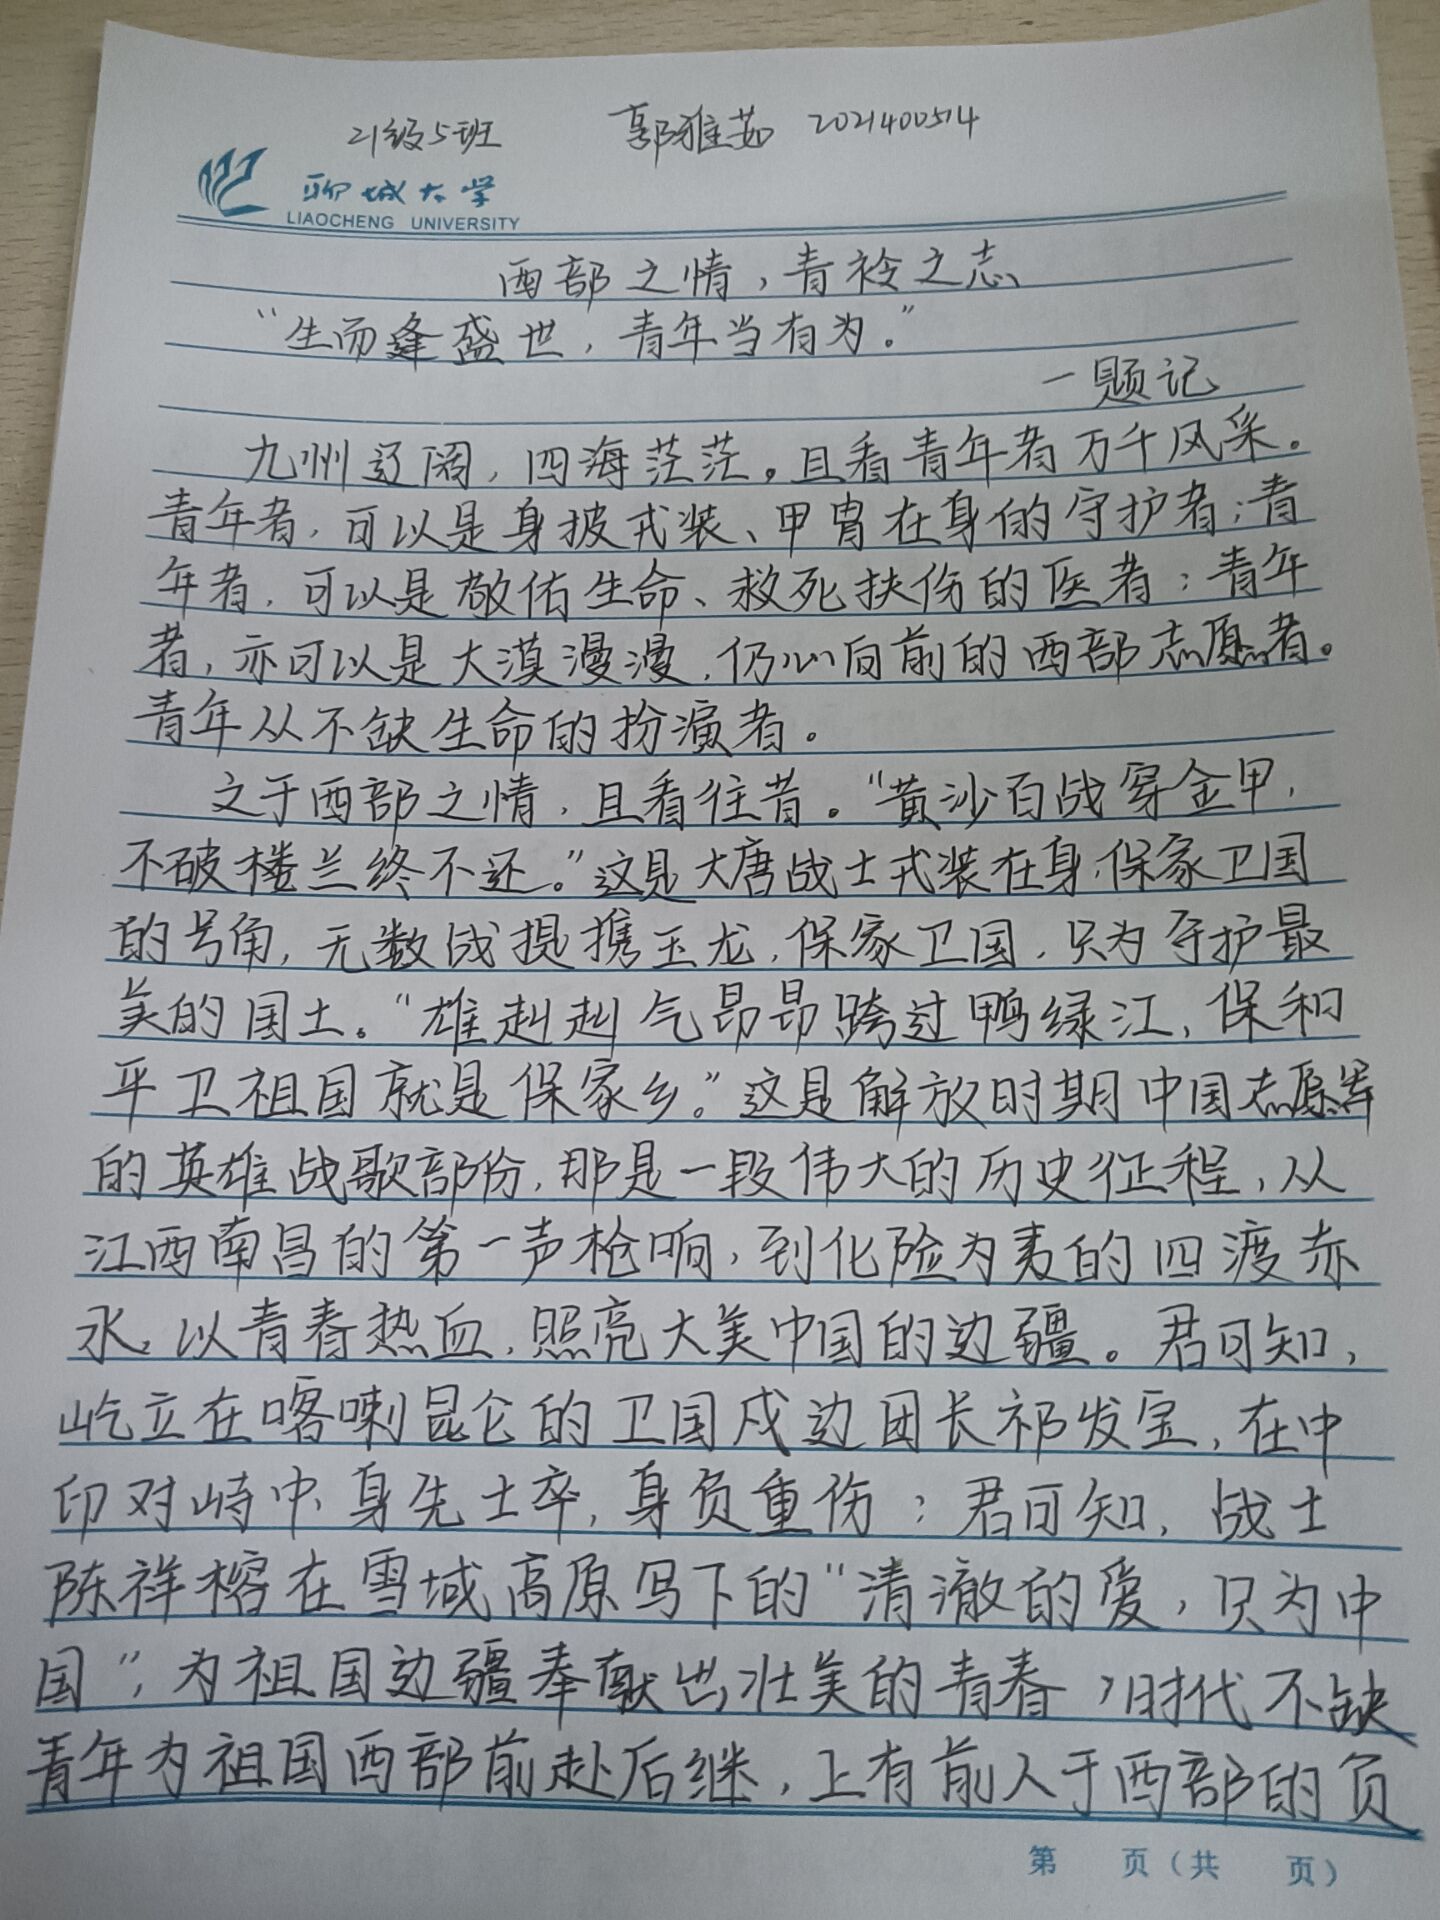 21级5班 郭雅茹 202140051４
聊城大学
LIAOCHENG UNIVERSITY
西部之情，青衿之志
“生而逢盛世，青年当有为。”
—题记
九州辽阔，四海茫茫。且看青年者万千风采。
青年者，可以是身披戎装、甲胄在身的守护者；青
年者，可以是敬佑生命、救死扶伤的医者；青年
者，亦可以是大漠漫漫，仍心向前的西部志愿者。
青年从不缺生命的扮演者。
之于西部之情，且看往昔。“黄沙百战穿金甲，
不破楼兰终不还。”这是大唐战士戎装在身，保家卫国
的号角，无数战提携玉龙，保家卫国，只为守护最
美的国土。“雄赳赳气昂昂跨过鸭绿江，保和
平卫祖国就是保家乡。”这是解放时期中国志愿军
的英雄战歌部份，那是一段伟大的历史征程，从
江西南昌的第一声枪响，到化险为夷的四渡赤
水，以青春热血，照亮大美中国的边疆。君可知，
屹立在喀喇昆仑的卫国戍边团长祁发宝，在中
印对峙中，身先士卒，身负重伤；君可知，战士
陈祥榕在雪域高原写下的“清澈的爱，只为中
国”，为祖国边疆奉献出壮美的青春，时代不缺
青年为祖国西部前赴后继，上有前人于西部的负
第 页（共 页）